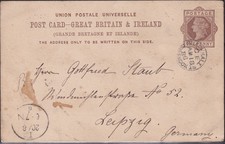 UNION POSTALE UNIVERSELLE
POST CARD—GREAT BRITAIN & IRELAND
(GRANDE BRETAGNE ET IRLANDE)
THE ADDRESS ONLY TO BE WRITTEN ON THIS SIDE.
Herrn Gottfried Staub
No 52.
Leipzig
Germany